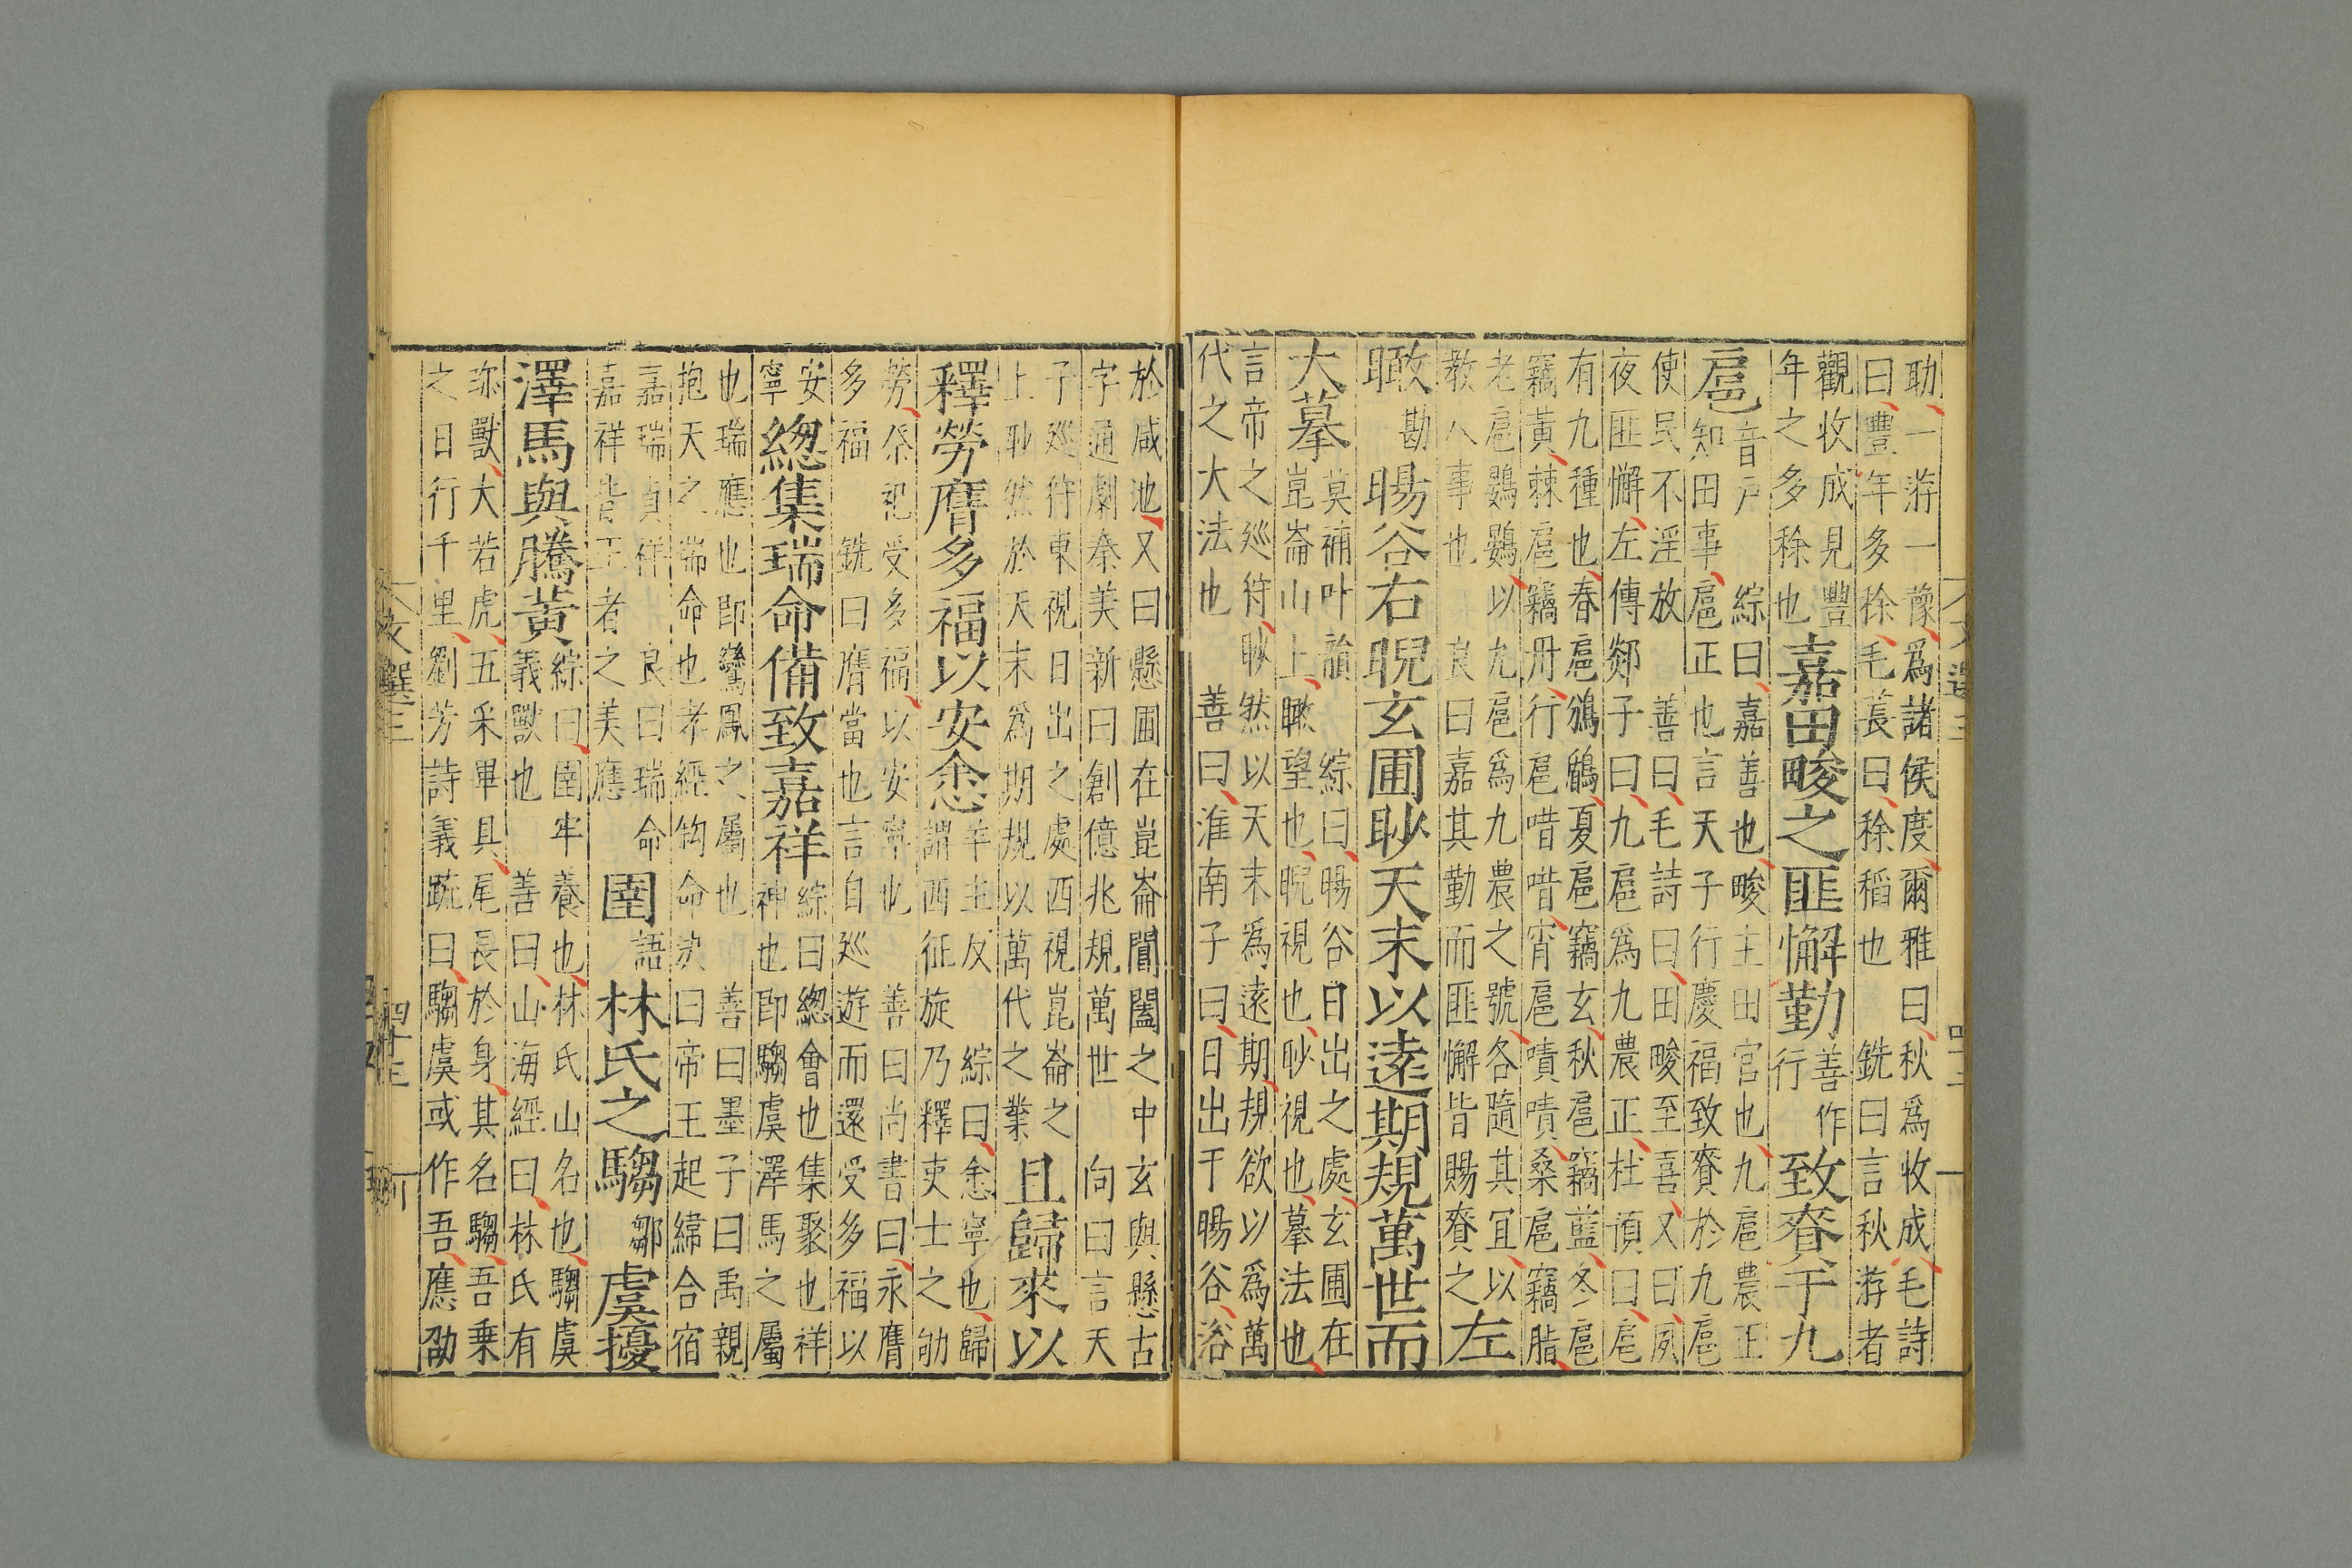 助一游一豫爲諸侯度爾雅曰秋爲收成毛詩
曰豐年多稌毛萇曰稌稻也 銑曰言秋游者
觀收成見豐
年之多稌也
嘉田畯之匪懈勤
善作
行
致賚于九
扈
音戸
知田事
綜曰嘉善也畯主田官也九扈農正
扈正也言天子行慶福致賚於九扈
使民不淫放 善曰毛詩曰田畯至喜又曰夙
夜匪懈左傳郯子曰九扈爲九農正杜預曰扈
有九種也春扈鳻鶥夏扈竊玄秋扈竊藍冬扈
竊黃棘扈竊丹行扈唶唶宵扈嘖嘖桑扈竊脂
老扈鷃鷃以九扈爲九農之號各隨其宜以
教人事也 良曰嘉其勤而匪懈皆賜賚之
左
瞰
勘
暘谷右睨玄圃眇天末以遠期規萬世而
大摹
莫補叶韻
崑崙山上瞰望也睨視也眇視也摹法也
綜曰暘谷日出之處玄圃在
言帝之巡狩眇然以天末爲遠期規欲以爲萬
代之大法也 善曰淮南子曰日出于暘谷浴
於咸池又曰懸圃在崑崙閶闔之中玄與懸古
字通劇秦美新曰創億兆規萬世 向曰言天
子巡狩東視日出之處西視崑崙之
上眇然於天末爲期規以萬代之業
且歸來以
釋勞膺多福以安悆
羊主反
謂西征旋乃釋吏士之劬
綜曰悆寧也歸
勞祭祀受多福以安寧也 善曰尚書曰永膺
多福 銑曰膺當也言自巡遊而還受多福以
安
寧
緫集瑞命備致嘉祥
綜曰緫會也集聚也祥
神也即騶虞澤馬之屬
也瑞應也即鸞鳳之屬也 善曰墨子曰禹親
抱天之瑞命也孝經鉤命決曰帝王起緯合宿
嘉瑞貞祥 良曰瑞命
嘉祥皆王者之美應
圉
語
林氏之騶
鄒
虞擾
澤馬與騰黃
綜曰圉牢養也林氏山名也騶虞
義獸也 善曰山海經曰林氏有
珎獸大若虎五采畢具尾長於身其名騶吾乗
之日行千里劉芳詩義䟽曰騶虞或作吾應劭
文選三
四十三